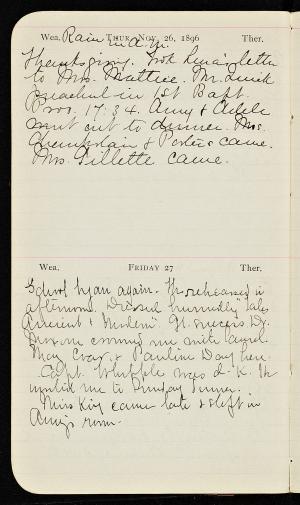 Wea. Rain in A.M. THUR. NOV. 26, 1896 Ther.
Thanksgiving. Took Lena's letter
to Mrs. Mattice. Mr. Quick
preached in 1st Bapt.
Prov. 17:34. Amy & Adele
went out to dinner. Mrs.
Chamberlain & Porters came.
Mrs. Gillette came.
Wea. FRIDAY 27 Ther.
School began again. rehearsed in
afternoon. Dressed "
Ancient & Modern. Gt. success. Dr.
me with
May & Pauline Day here.
Capt. Whipple was d. K. He
invited me to Sunday dinner.
Miss King came late & slept in
Amy's room.